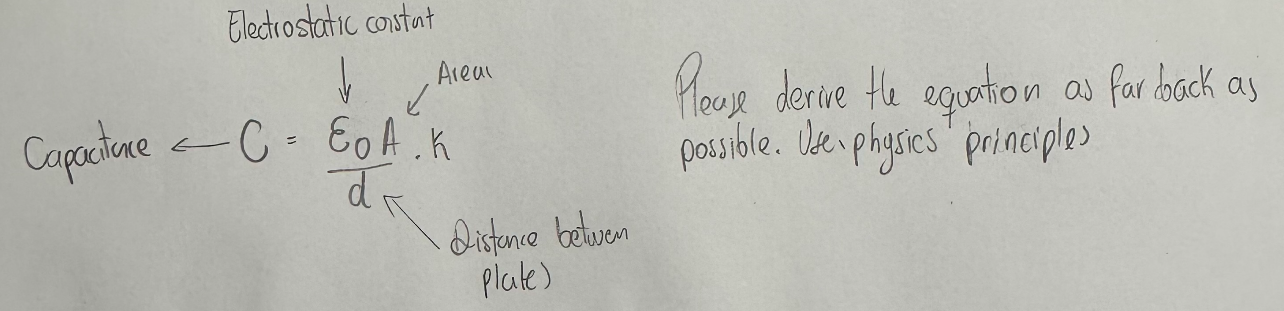 Electrostatic constant
Area
Capacitance ← C = ε₀A/d . k
Distance between
plates
Please derive the equation as far back as
possible. Use physics principles